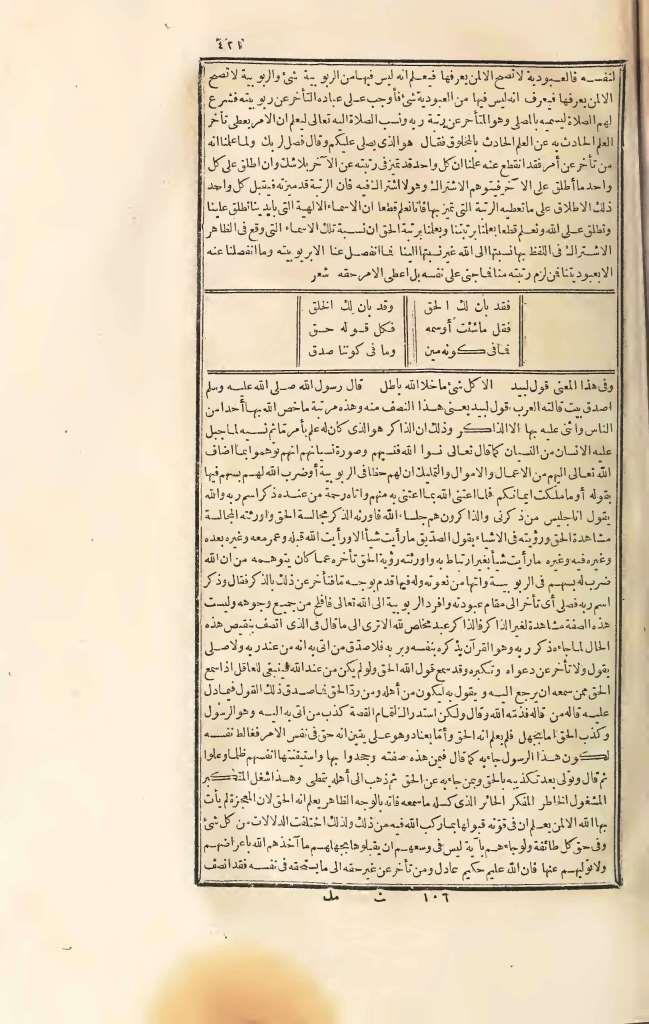 ٤٢١
لنفسه فالعبودية لا تصح الا لمن يعرفها فيعلم انه ليس فيها من الربوبية شئ والربوبية لا تصح
الا لمن يعرفها فيعرف انه ليس فيها من العبودية شئ فأوجب على عباده التأخر عن ربوبيته فشرع
لهم الصلاة ليسميه بالمصلى وهو المتأخر عن رتبة ربه ونسب الصلاة اليه تعالى ليعلم ان الامر يعطى تأخر
العلم الحادث به عن العلم الحادث بالمخلوق فقال هو الذى يصلى عليكم وقال فصل لربك ولما علمنا انه
من تأخر عن أمر فقد انقطع عنه علمنا ان كل واحد قد تميز فى رتبته عن الآخر بلا شك وان اطلق على كل
واحد ما أطلق على الآخر فيتوهم الاشتراك وهو لا اشتراك فيه فان الرتبة قد ميزته فيقبل كل واحد
ذلك الاطلاق على ما تعطيه الرتبة التى تميز بها فانا نعلم قطعا ان الاسماء الالهية التى بايدينا تطلق علينا
وتطلق على الله ونعلم قطعا بعلمنا برتبتنا وبعلمنا برتبة الحق ان نسبة تلك الاسماء التى وقع فى الظاهر
الاشتراك فى اللفظ بها نسبتها الى الله غير نسبتها الينا فما انفصل عنا الا بربوبيته وما انفصلنا عنه
الا بعبوديتنا فمن لزم رتبته منا فما جنى على نفسه بل اعطى الامر حقه شعر
فقد بان لك الحق وقد بان لك الخلق
فقل ما شئت أو سمه فكل قوله حق
فما فى كونه مين وما فى كوننا صدق
وفى هذا المعنى قول لبيد الا كل شئ ما خلا الله باطل قال رسول الله صلى الله عليه وسلم
اصدق بيت قالته العرب قول لبيد يعنى هذا النصف منه وهذه مرتبة ما خص الله بها أحدا من
الناس واثنى عليه بها الا الذاكر وذلك ان الذاكر هو الذى كان له علم بأمر ما ثم نسيه لما جبل
عليه الانسان من النسيان كما قال تعالى نسوا الله فنسيهم وصورة نسيانهم انهم توهموا بما اضاف
الله تعالى اليهم من الاعمال والاموال والتمليك ان لهم حظا فى الربوبية أو ضرب الله لهم بسهم فيها
بقوله أو ما ملكت ايمانكم فلما اعتنى الله بما اعتنى به منهم واتاه رحمة من عنده ذكر اسم ربه والله
يقول انا جليس من ذكرنى والذاكرون هم جلساء الله فاورثه الذكر مجالسة الحق واورثته المجالسة
مشاهدة الحق ورؤيته فى الاشياء يقول الصديق ما رأيت شيأ الا ورأيت الله قبله وعمر معه وغيره بعده
وغيره فيه وغيره ما رأيت شيأ بغير ارتباط به واورثته رؤية الحق تأخره عما كان يتوهمه من ان الله
ضرب له بسهم فى الربوبية وانها من نعوته وله فيها قدم بوجه ما فتأخر عن ذلك بالذكر فقال وذكر
اسم ربه فصلى أى تأخر الى مقام عبوديته وافرد الربوبية الى الله تعالى فافلح من جميع وجوهه وليست
هذه الصفة مشاهدة لغير الذاكر فالذاكر عبد مخلص لله الا ترى الى ما قال فى الذى اتصف بنقيض هذه
الحال لما جاءه ذكر ربه وهو القرآن يذكره بنفسه وبربه فلا صدق من اتى به انه من عند ربه ولا صلى
يقول ولا تأخر عن دعواه وتكبره وقد سمع قول الله الحق ولو لم يكن من عند الله فينبغى للعاقل اذا سمع
الحق ممن سمعه ان يرجع اليه ويقول به ليكون من أهله ومن رد الحق فما صدق ذلك القول فيما دل
عليه قاله من قاله فذمته الله وقال ولكن استدراك لتمام القصة كذب من اتى به اليه وهو الرسول
وكذب الحق اما بجهل فلم يعلم انه الحق واما بعناد وهو على يقين انه حق فى نفس الامر فغالط نفسه
لكون هذا الرسول جاء به كما قال فيمن هذه صفته وجحدوا بها واستيقنتها انفسهم ظلما وعلوا
ثم قال وتولى بعد تكذيبه بالحق وبمن جاء به عن الحق ثم ذهب الى أهله يتمطى وهذا شغل المتكبر
المشغول الخاطر المفكر الحائر الذى كسله ما سمعه فانه بالوجه الظاهر يعلم انه الحق لان المعجزة لم يأت
بها الله الا لمن يعلم ان فى قوته قبولها بما ركب الله فيه من ذلك ولذلك اختلفت الدلالات من كل شئ
وفى حق كل طائفة ولو جاءهم بآية ليس فى وسعهم ان يقبلوها بجهلهم ما آخذهم الله باعراضهم
ولا توليهم عنها فان الله عليم حكيم عادل ومن تأخر عن غير حقه الى ما يستحقه فى نفسه فقد انصف
١٠٦ ث مك